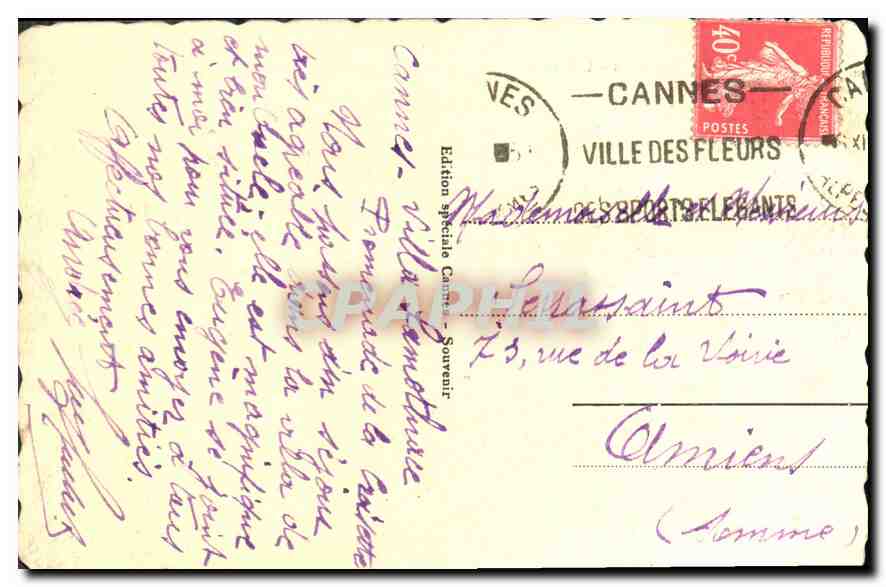 Cannes - Villa
Promenade de la Croisette
Nous faisons d'un séjour
très agréable dans la villa de
mon oncle - elle est magnifique
et bien située. Eugène se joint
à moi pour vous envoyer à tous
toutes nos bonnes amitiés.
Affectueusement
Edition spéciale Cannes - Souvenir
NES
— CANNES —
VILLE DES FLEURS
DES SPORTS ELEGANTS
40c
REPUBLIQUE FRANÇAISE
POSTES
CAN
XI
Mademoiselle et Monsieur
73, rue de la Voirie
Amiens
(Somme)
CPAPHIL